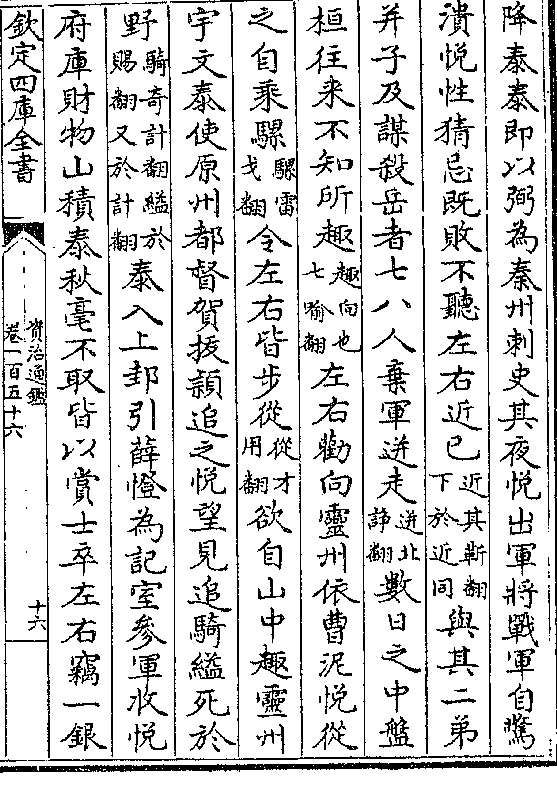 降泰泰即以弼為秦州刺史其夜悦出軍將戰軍自驚
潰悦性猜忌既敗不聽左右近己近其靳翻下於近同與其二弟
并子及謀殺岳者七八人棄軍迸走迸北諍翻數日之中盤
桓往来不知所趣趣向也七喻翻左右勸向靈州依曹泥悦從
之自乗騾騾雷戈翻令左右皆步從從才用翻欲自山中趣靈州
宇文泰使原州都督賀拔頴追之悦望見追騎縊死於
野騎奇計翻縊於賜翻又於計翻泰入上邽引薛憕為記室參軍收悦
府庫財物山積泰秋毫不取皆以賞士卒左右竊一銀
欽定四庫全書
資治通鑑
卷一百五十六
十六